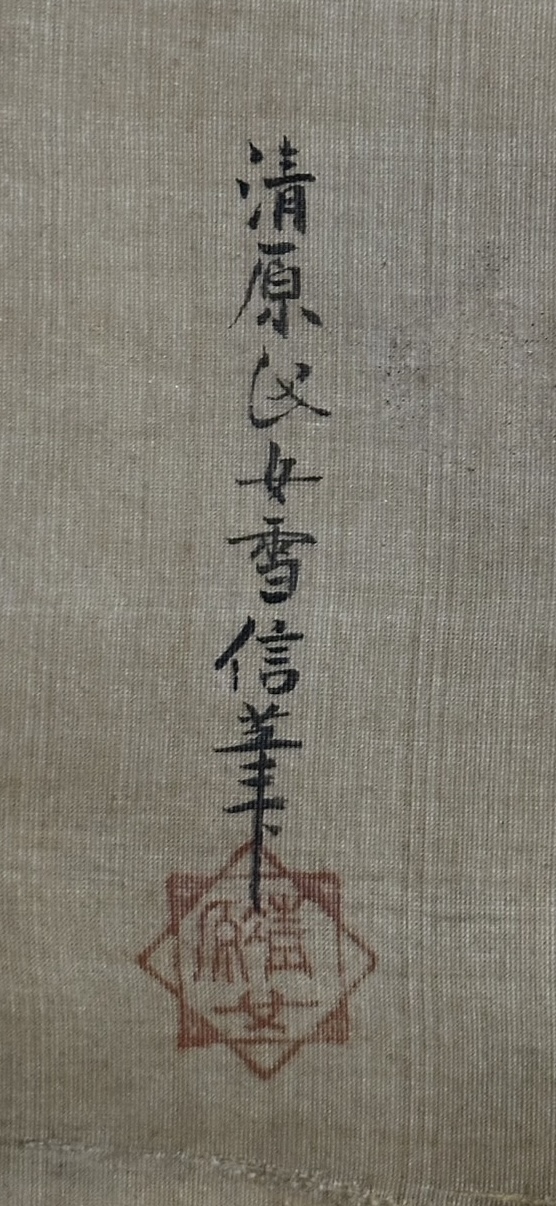 清原氏女雪信筆
清原
女